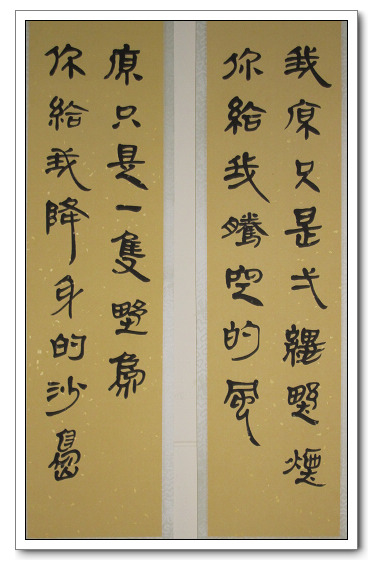 我原只是弌縷野煙
你給我騰空的風
原只是一隻野鳧
你給我降身的沙島